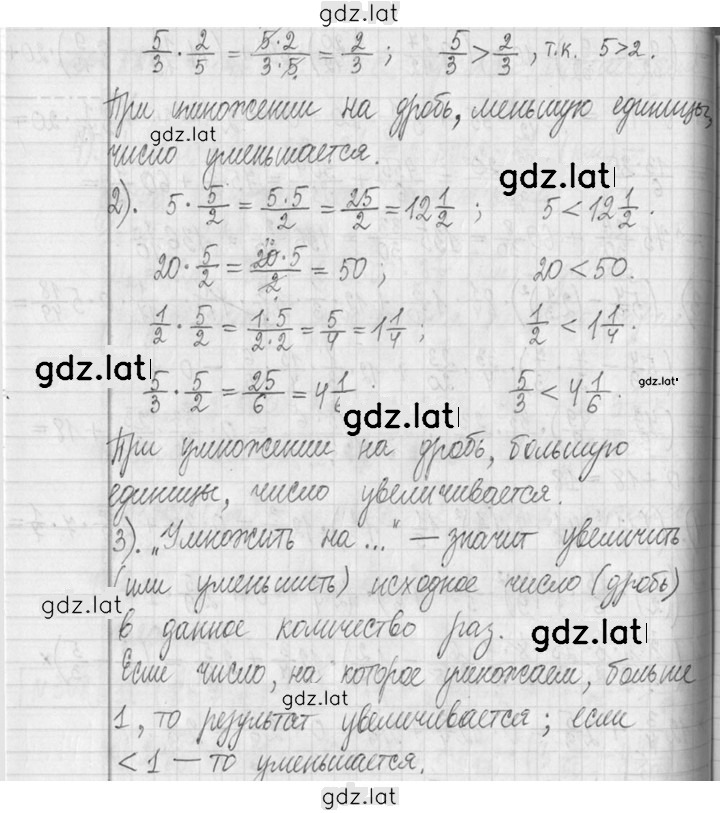 gdz.lat
5/3 · 2/5 = 5·2/3·5 = 2/3 ; 5/3 > 2/3 , т.к. 5>2.
При умножении на дробь, меньшую единицы,
gdz.lat
число уменьшается.
gdz.lat
2). 5 · 5/2 = 5·5/2 = 25/2 = 12 1/2 ; 5 < 12 1/2 .
20 · 5/2 = 20·5/2 = 50 ; 20 < 50.
1/2 · 5/2 = 1·5/2·2 = 5/4 = 1 1/4 ; 1/2 < 1 1/4 .
gdz.lat
5/3 · 5/2 = 25/6 = 4 1/6 5/3 < 4 1/6 .
gdz.lat
gdz.lat
При умножении на дробь, большую
единицы, число увеличивается.
3). „Умножить на ..." — значит увеличить
(или уменьшить) исходное число (дробь)
gdz.lat
в данное количество раз.
gdz.lat
Если число, на которое умножаем, больше
gdz.lat
1, то результат увеличивается; если
< 1 — то уменьшается.
gdz.lat